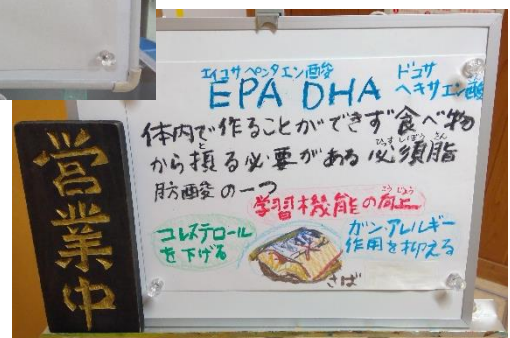 エイコサペンタエン酸
ドコサ
ヘキサエン酸
EPA DHA
体内で作ることができず食べ物
から摂る必要がある必須脂
肪酸の一つ
ひっすしぼうさん
こうじょう
学習機能の向上
コレステロール
を下げる
ガン・アレルギー
作用を抑える
さば
営業中